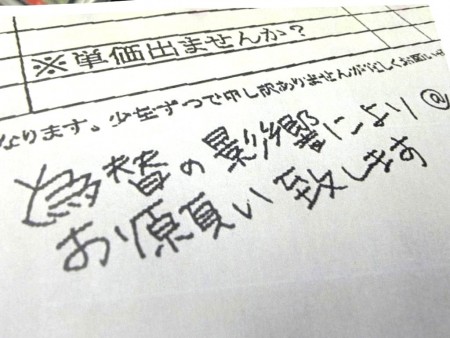 ※単価出ませんか?
なります。少量ずつで申し訳ありませんが宜しくお願い
為替の影響により@
お願い致します